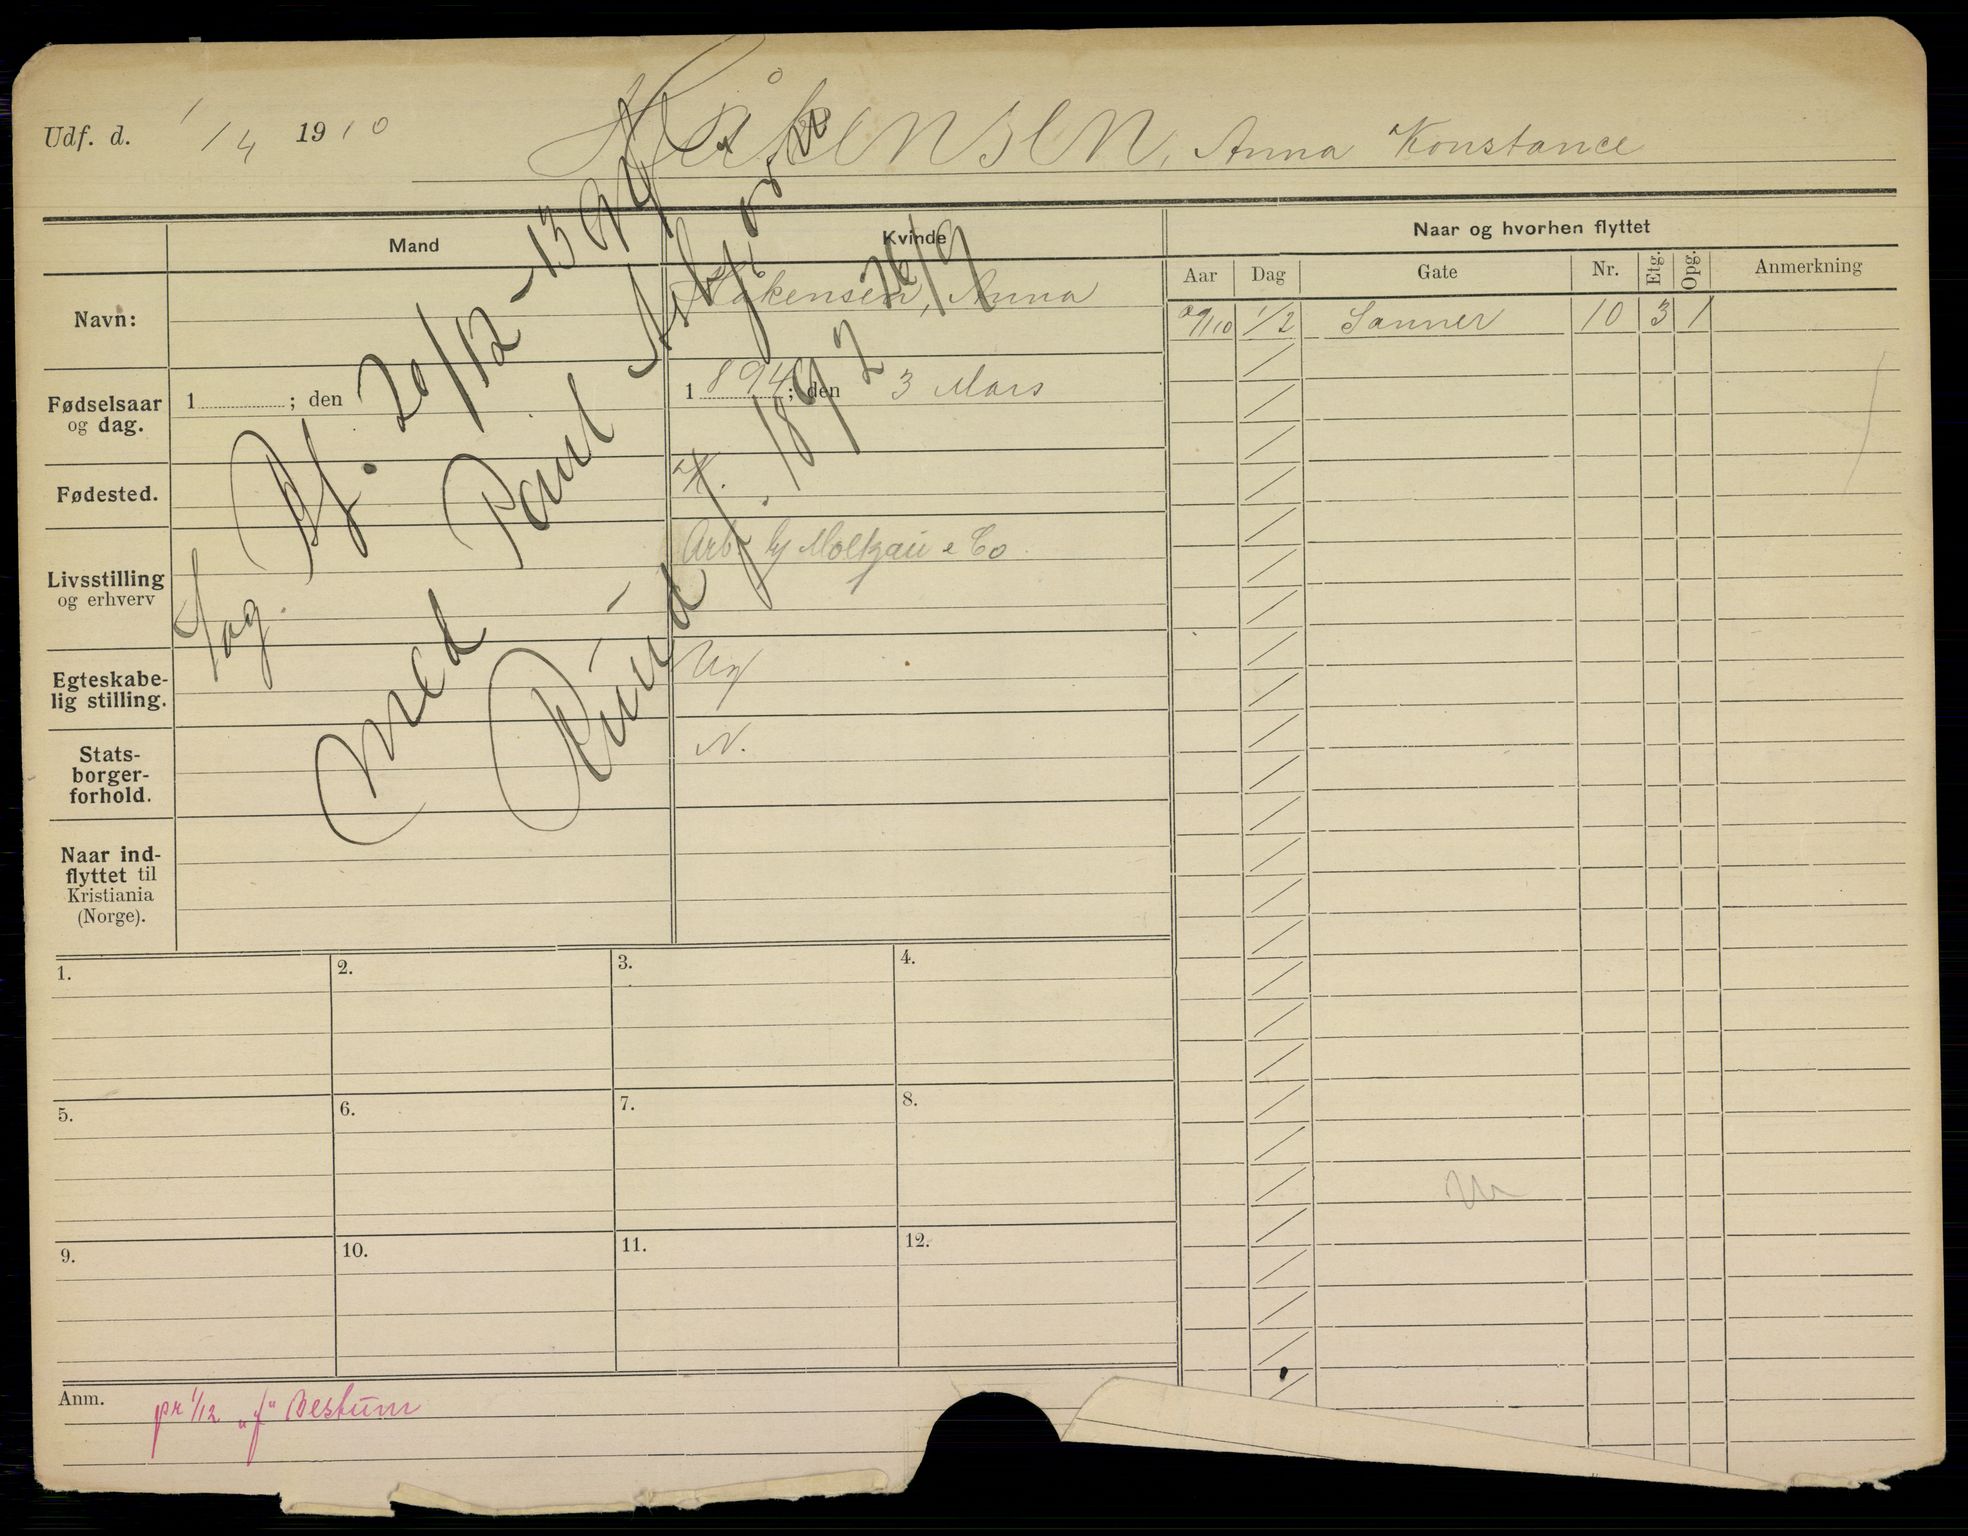 Udf. d. 1/4 1910
Håkensen, Anna Konstance
Mand
Kvinde
Naar og hvorhen flyttet
Aar Dag Gate Nr. Etg. Opg. Anmerkning
Navn:
Håkensen, Anna
1/2 Sanner 10 3 1
Fødselsaar
og dag.
1 ; den
1894; den 3 Mars
Fødested.
K.
Livsstilling
og erhverv
Arb. Moltzau & Co.
Egteskabe-
lig stilling.
Ug
Stats-
borger-
forhold.
N.
Naar ind-
flyttet til
Kristiania
(Norge).
20/12-13
med Paul Asbjørn
Ruud f. 1892 26/9
1.
2.
3.
4.
5.
6.
7.
8.
9.
10.
11.
12.
Anm.
pr 1/12 "f" Bestum